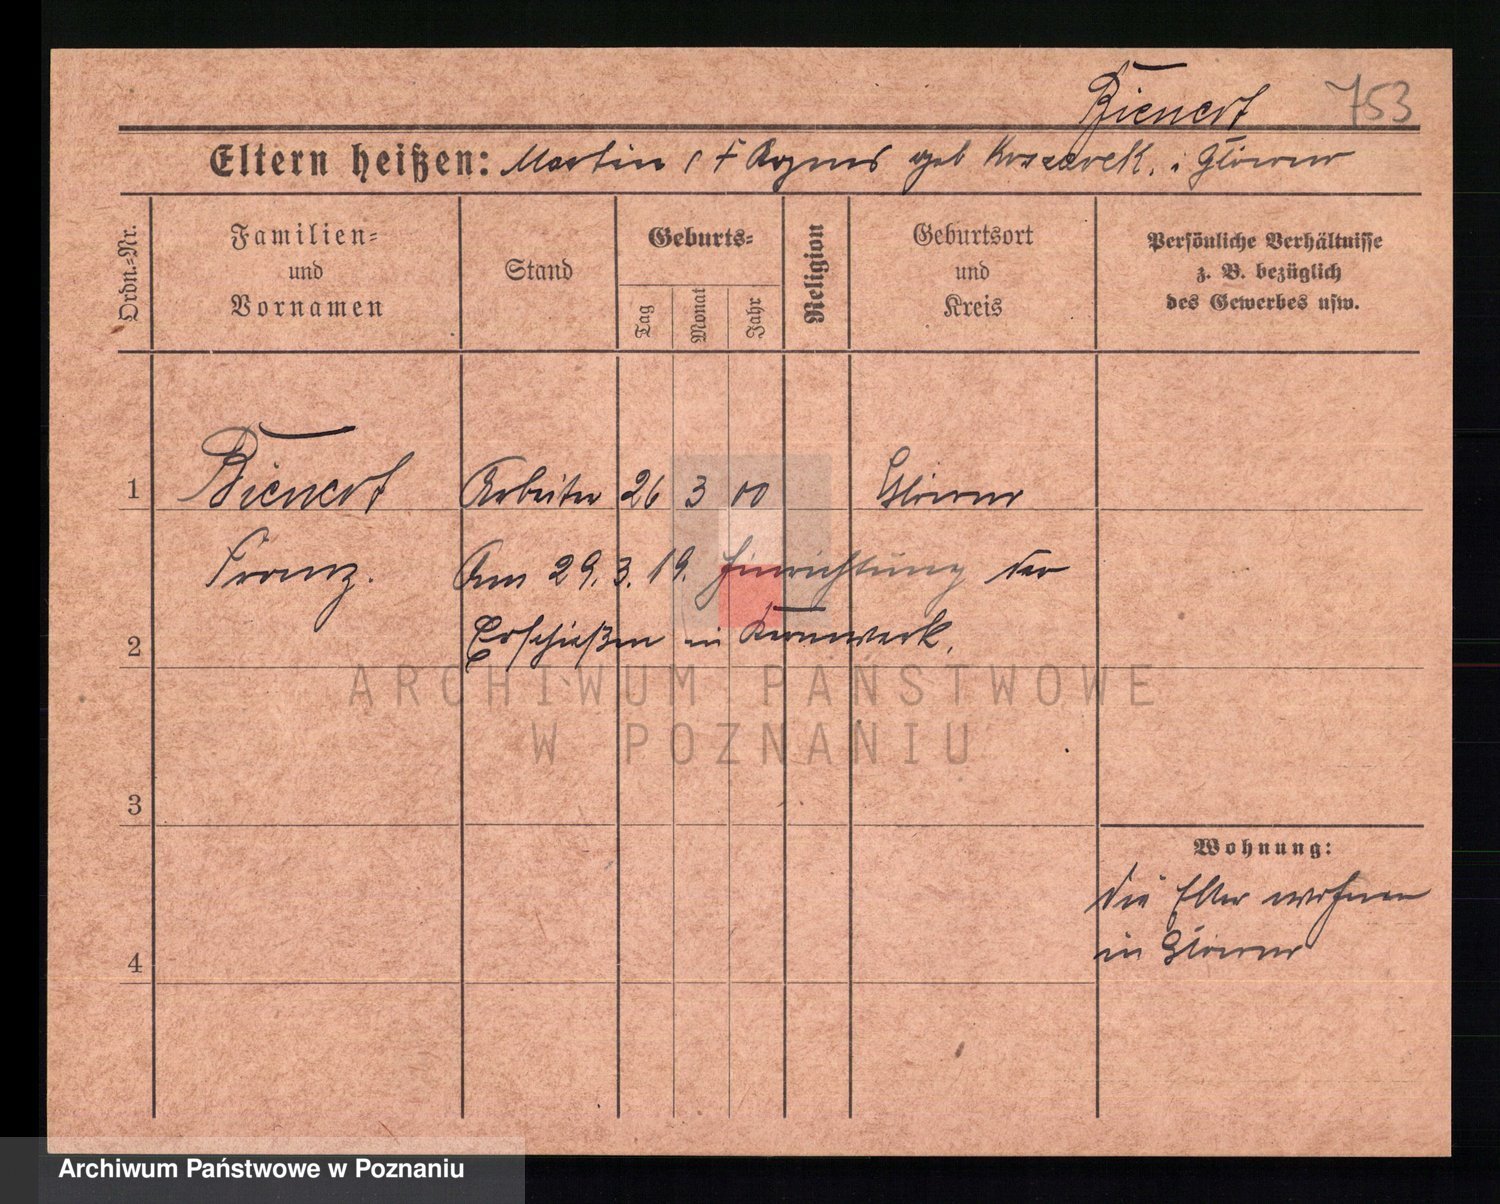 Bienert 753
Eltern heißen: Martin geb i Glowno
Ordn.-Nr.
Familien-
und
Vornamen
Stand
Geburts-
Tag
Monat
Jahr
Religion
Geburtsort
und
Kreis
Persönliche Verhältnisse
z. B. bezüglich
des Gewerbes usw.
1 Bienert Arbeiter 26 3 00 Glowno
Franz. Am 29. 3. 19. Hinrichtung der
2 Erschießen in Kernwerk.
3
Wohnung:
die Elter wohnen
in Glowno
4
ARCHIWUM PAŃSTWOWE
W POZNANIU
Archiwum Państwowe w Poznaniu